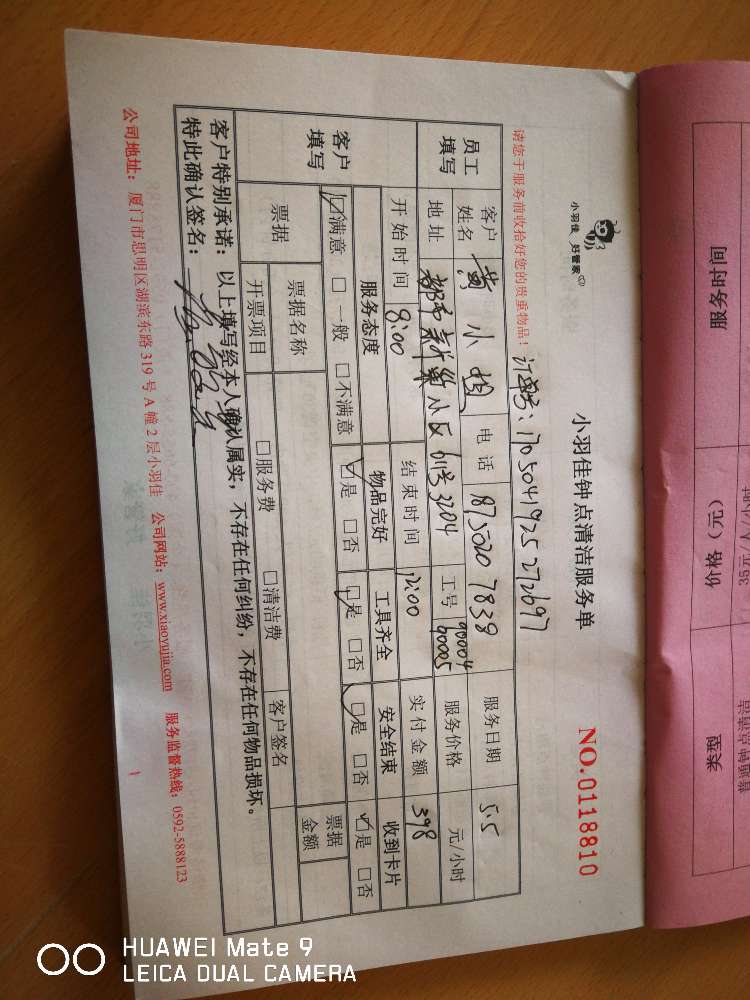 小羽佳 好管家
小羽佳钟点清洁服务单
NO.0118810
请您于服务前收拾好您的贵重物品！
订单号：1705041925272697
员工填写
客户姓名 黄小姐 电话 8750207839 服务日期 5.5
地址 小区61号3204 工号 90004 90005 服务价格 元/小时
开始时间 9:00 结束时间 12:00 实付金额 398
客户填写
服务态度 物品完好 工具齐全 安全结束 收到卡片
☑满意 □一般 □不满意 ☑是 □否 ☑是 □否 ☑是 □否 ☑是 □否
票据 票据名称 票据金额
开票项目 □服务费 □清洁费 客户签名
客户特别承诺：以上填写经本人确认属实，不存在任何纠纷，不存在任何物品损坏。
特此确认签名：
公司地址：厦门市思明区湖滨东路319号A幢2层小羽佳 公司网站：www.xiaoyujia.com 服务监督热线：0592-5888123
服务时间
价格（元）
类型
HUAWEI Mate 9
LEICA DUAL CAMERA